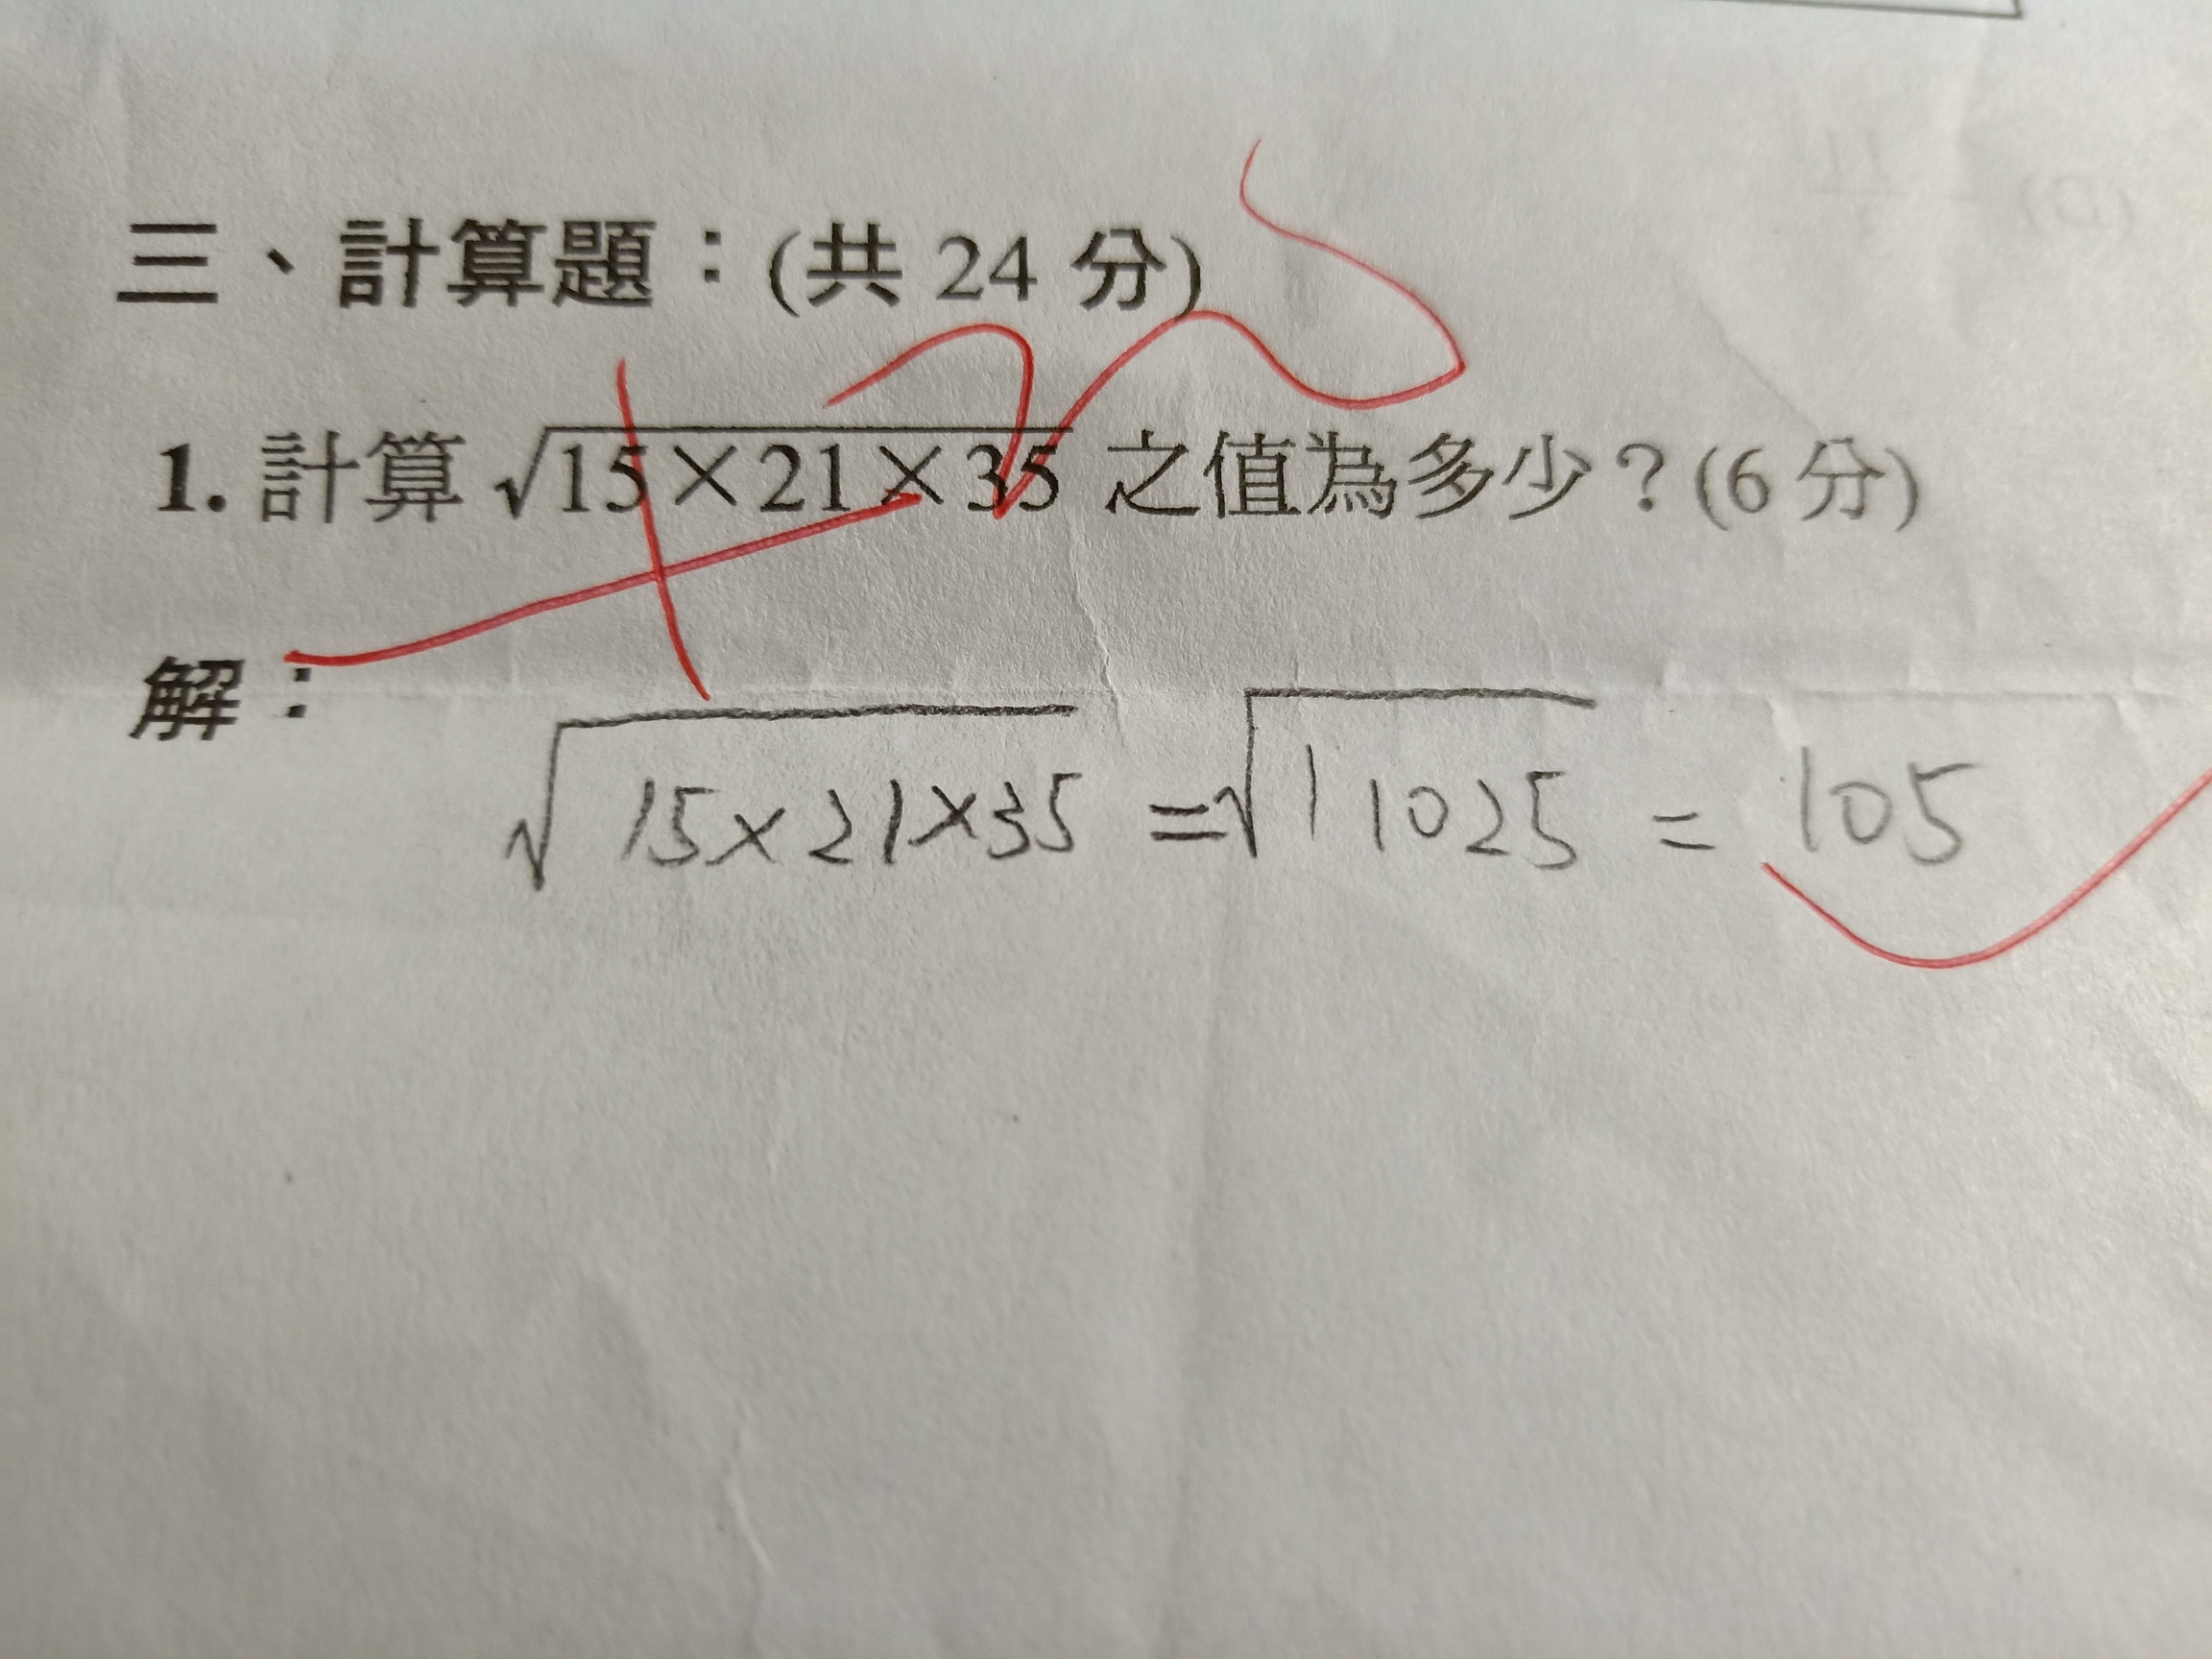 三、計算題：(共 24 分)
1. 計算 √15×21×35 之值為多少？(6 分)
解：
√15×21×35 = √11025 = 105